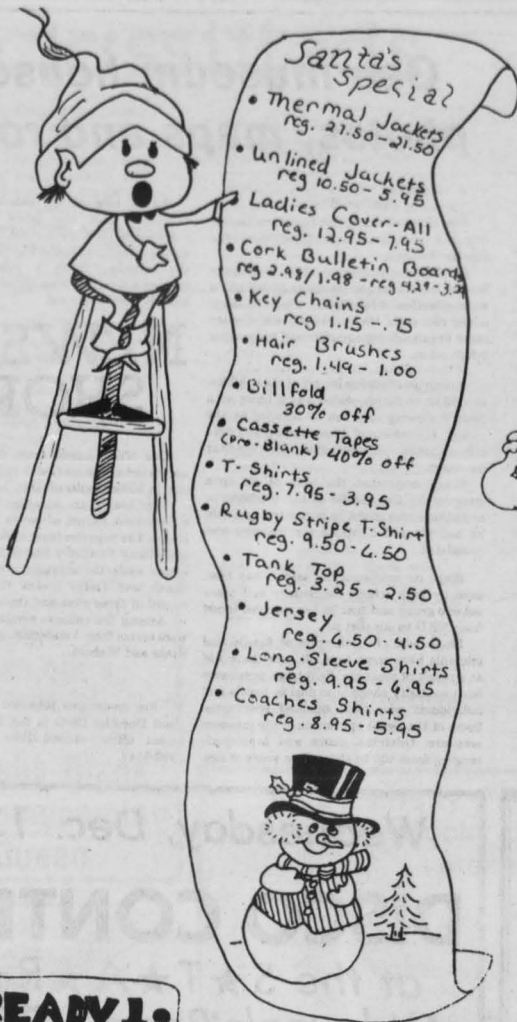 Santa's
Special
• Thermal Jackets
reg. 27.50-21.50
• Unlined Jackets
reg 10.50-5.95
• Ladies Cover-All
reg. 12.95-7.95
• Cork Bulletin Boards
reg 2.98/1.98-reg 4.29-3.29
• Key Chains
reg 1.15-.75
• Hair Brushes
reg. 1.49-1.00
• Billfold
30% off
• Cassette Tapes
(Pro-Blank) 40% off
• T-Shirts
reg. 7.95-3.95
• Rugby Stripe T-Shirt
reg. 9.50-6.50
• Tank Top
reg. 3.25-2.50
• Jersey
reg. 6.50-4.50
• Long-Sleeve Shirts
reg. 9.95-6.95
• Coaches Shirts
reg. 8.95-5.95